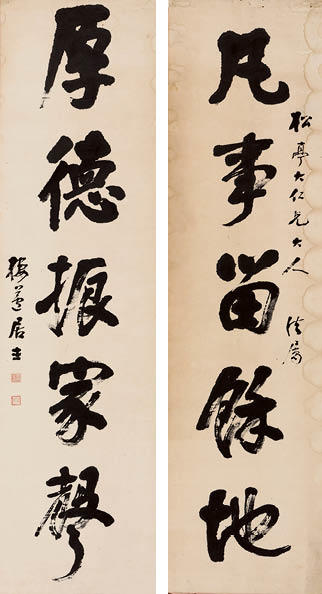 松亭大仁兄大人 法屬
凡事留餘地
厚德振家聲
居士